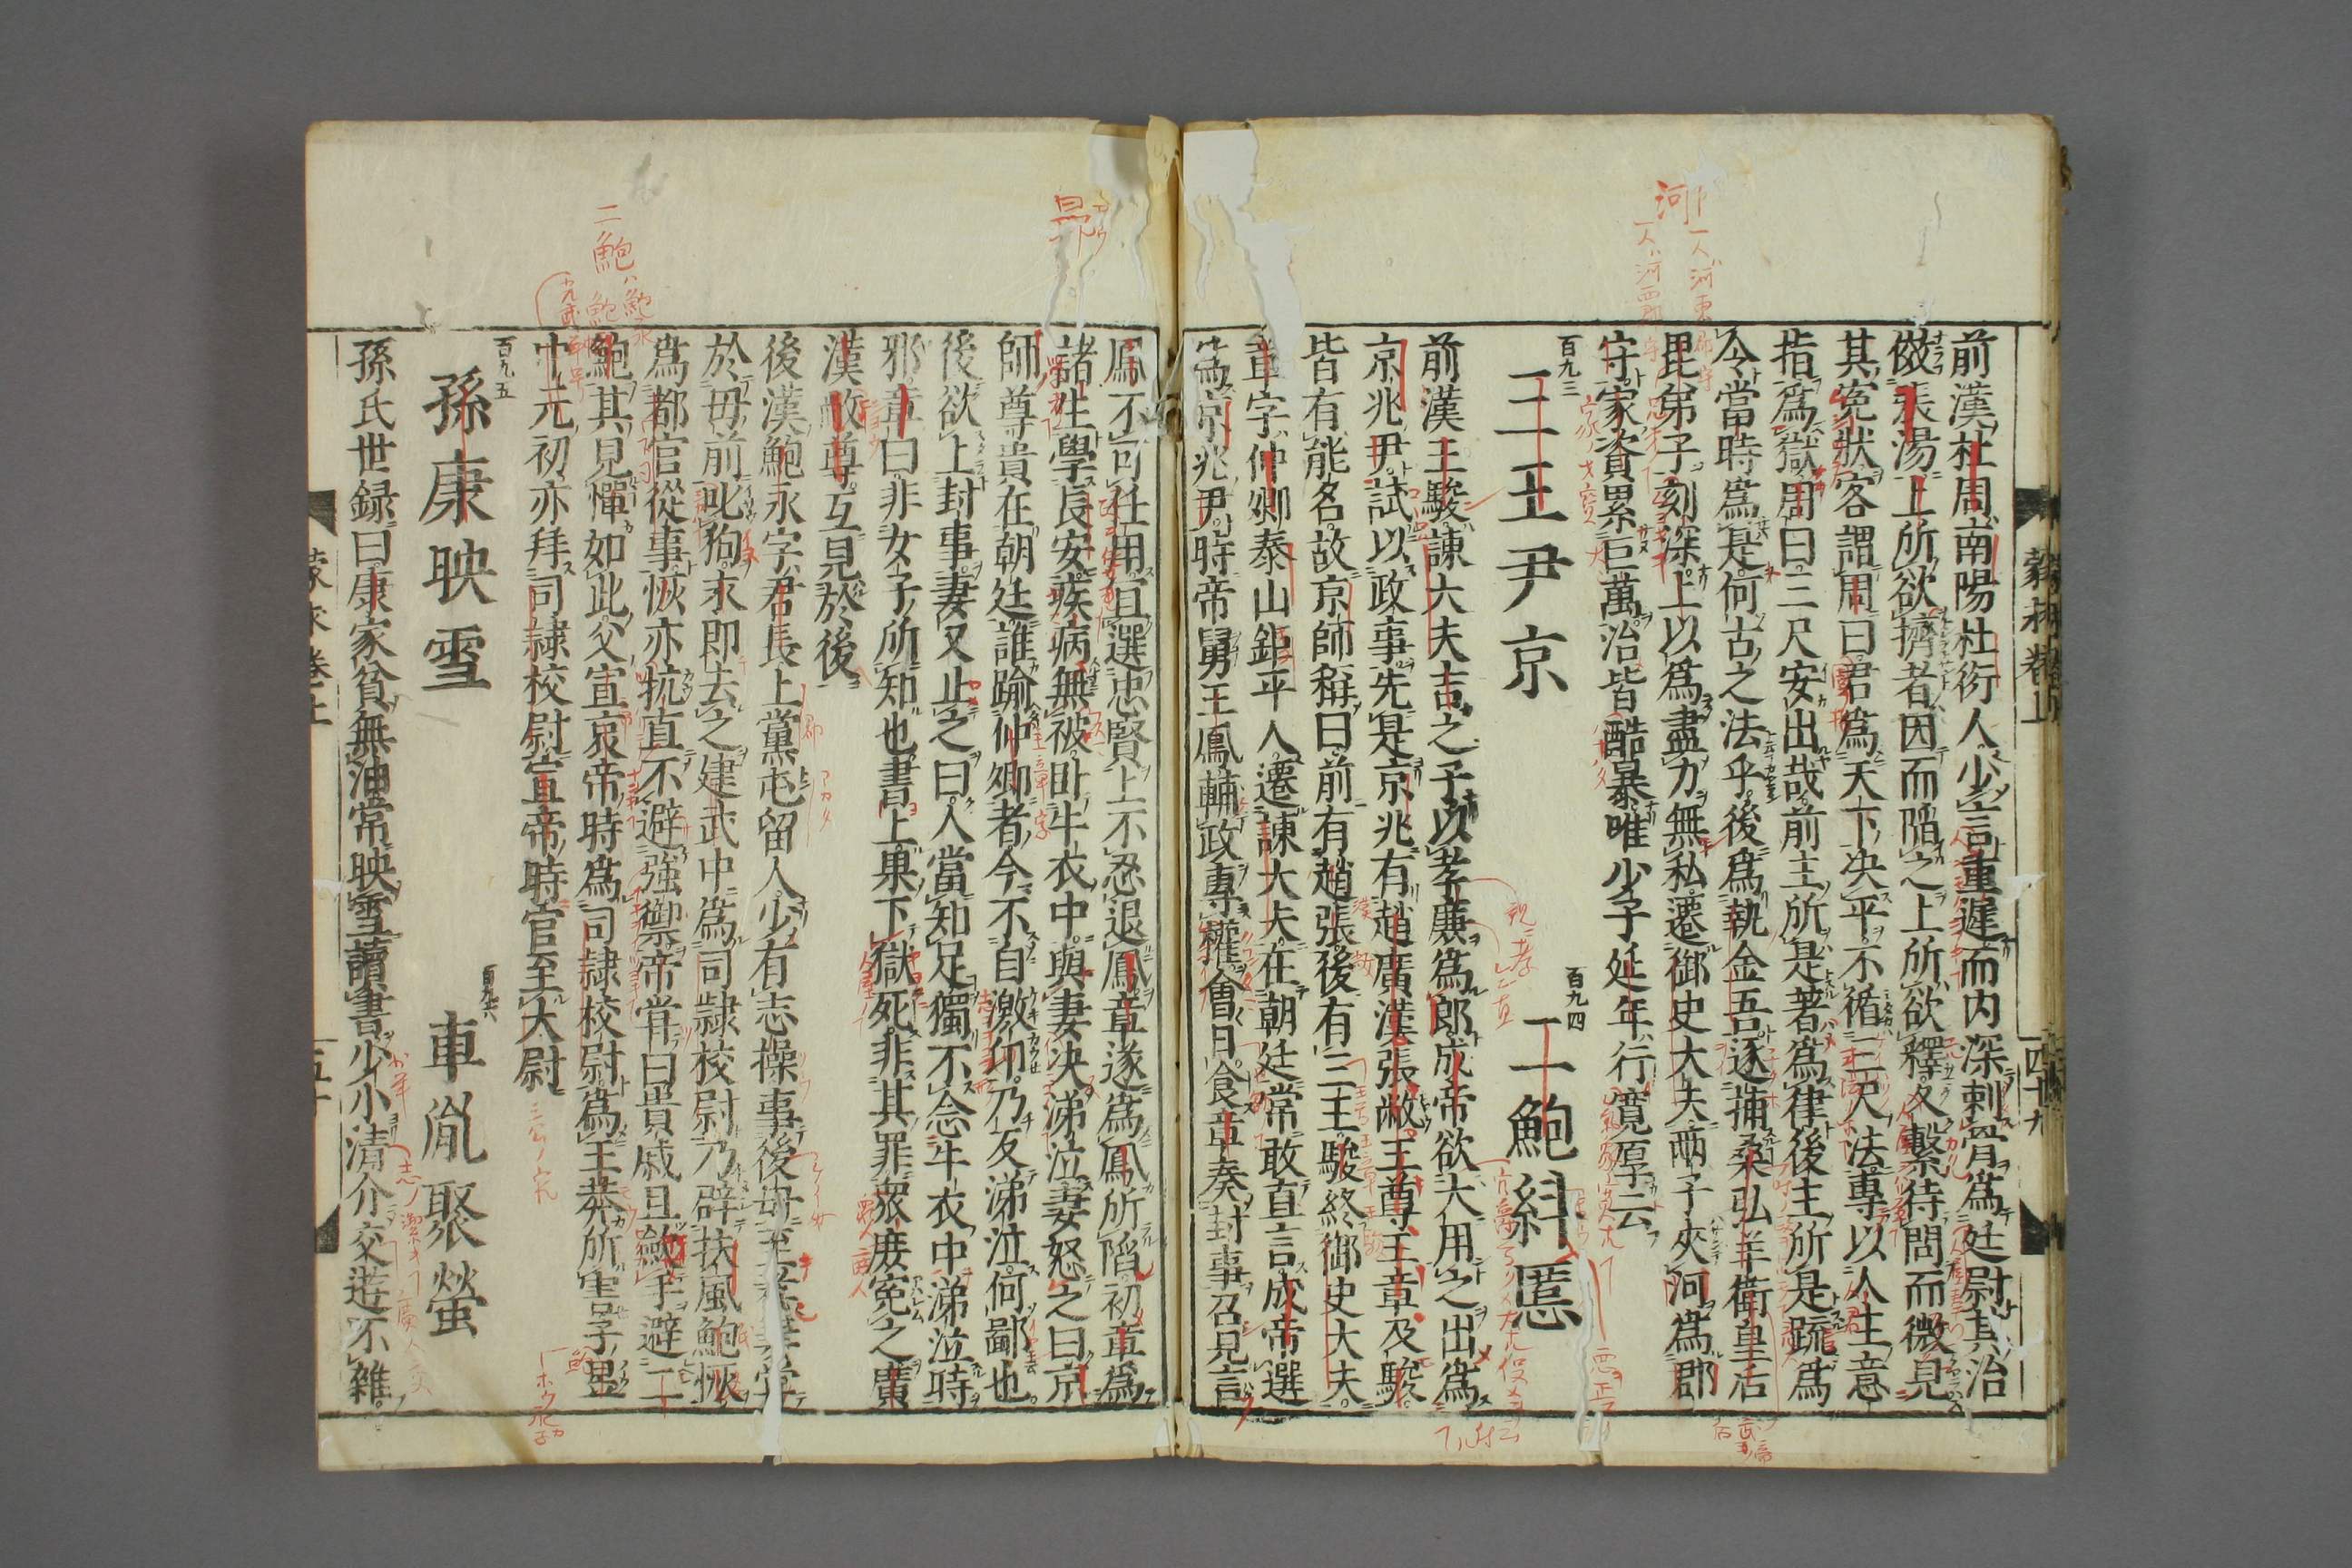 前漢杜周南陽杜衍人少言重遲而内深刺骨爲廷尉其治
倣張湯上所欲擠者因而陷之上所欲釋久繫待問而微見
其寃狀客謂周曰君爲天下决平不循三尺法專以人主意
指爲獄周曰三尺安出哉前主所是著爲律後主所是疏爲
令當時爲是何古之法乎後爲執金吾逐捕桑弘羊衛皇后
昆弟子刻深上以爲盡力無私遷御史大夫兩子夾河爲郡
守家資累巨萬治皆酷暴唯少子延年行寛厚云
百九三
三王尹京
百九四
二鮑糾慝
前漢王駿諫大夫吉之子以孝廉爲郎成帝欲大用之出爲
京兆尹試以政事先是京兆有趙廣漢張敞王尊王章及駿
皆有能名故京師稱曰前有趙張後有三王駿終御史大夫
章字仲卿泰山鉅平人遷諫大夫在朝廷常敢直言成帝選
爲京兆尹時帝舅王鳳輔政專權會日食章奏封事召見言
鳳不可任用宜選忠賢上不忍退鳳章遂爲鳳所陷初章爲
諸生學長安疾病無被卧牛衣中與妻决涕泣妻怒之曰京
師尊貴在朝廷誰踰仲卿者今不自激仰乃反涕泣何鄙也
後欲上封事妻又止之曰人當知足獨不念牛衣中涕泣時
邪章曰非女子所知也書上果下獄死非其罪衆庶寃之廣
漢敞尊互見於後
後漢鮑永字君長上黨屯留人少有志操事後母至孝妻嘗
於母前叱狗永即去之建武中爲司隷校尉乃辟扶風鮑恢
爲都官從事恢亦抗直不避強禦帝常曰貴戚且斂手避二
鮑其見憚如此父宣哀帝時爲司隷校尉爲王莽所害子昱
中元初亦拜司隷校尉宣帝時官至大尉
百九五
孫康映雪
百九六
車胤聚螢
孫氏世録曰康家貧無油常映雪讀書少小清介交遊不雜
蒙求卷上
四十九